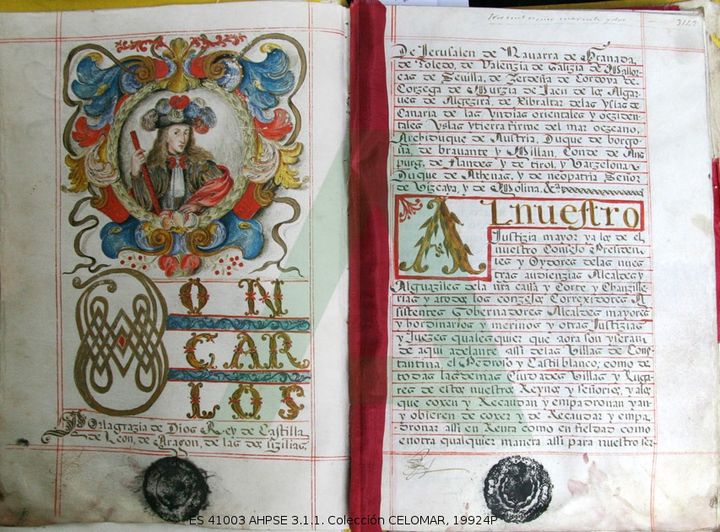 DON
CAR
LOS
Por la grazia de Dios Rey de Castilla
de Leon, de Aragon, de las dos sizilias
3125
De Jerusalen de Navarra de Granada
de Toledo, de Valenzia de Galizia de Mallor
cas de Sevilla, de Zerdeña de Cordova de
Corzega de Murzia de Jaen de los Algar
ves de Algezira, de Gibraltar de las Yslas de
Canaria de las Yndias orientales y oczиden
tales Yslas y tierra firme del mar oczeano,
Archiduque de Austria, Duque de borgo
ña de brauante y Millan, Conde de Aus
purg, de Flandes y de tirol y Varzelona
Duque de Athenas, y de neopatria Señor
de Vizcaya, y de Molina, &
Al nuestro
Justizia mayor y a los de el
nuestro Consejo Presiden
tes y Oydores de las nues
tras audienzias Alcaldes y
Alguaziles de la nra cassa y Corte y Chanzille
rias y a todos los conzejos Correxidores A
sistentes Governadores Alcaldes mayores
y hordinarios y merinos y otras Justizias
y Juezes qualesquier que aora son y seran
de aqui adelante assi de las Villas de Cons
tantina, el Pedroso y Castilblanco; como de
todas las demas Ciudades Villas y Lugar
res de estos nuestros Reynos y Señorios, y a los
que coxen y Recaudan y empadronan y an
y obieren de coxer de Recaudar y empa
dronar assi en Renta como en fieldad como
en otra qualquier manera assi para nuestro ser
ES 41003 AHPSE 3.1.1. Colección CELOMAR, 19924P